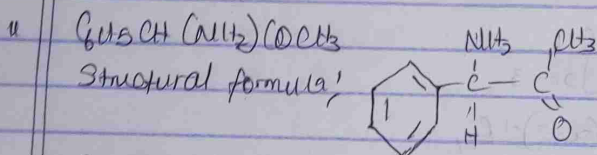 4
C6H5CH (NH2) COCH3
Structural formula;
NH2
CH3
C
C
H
O